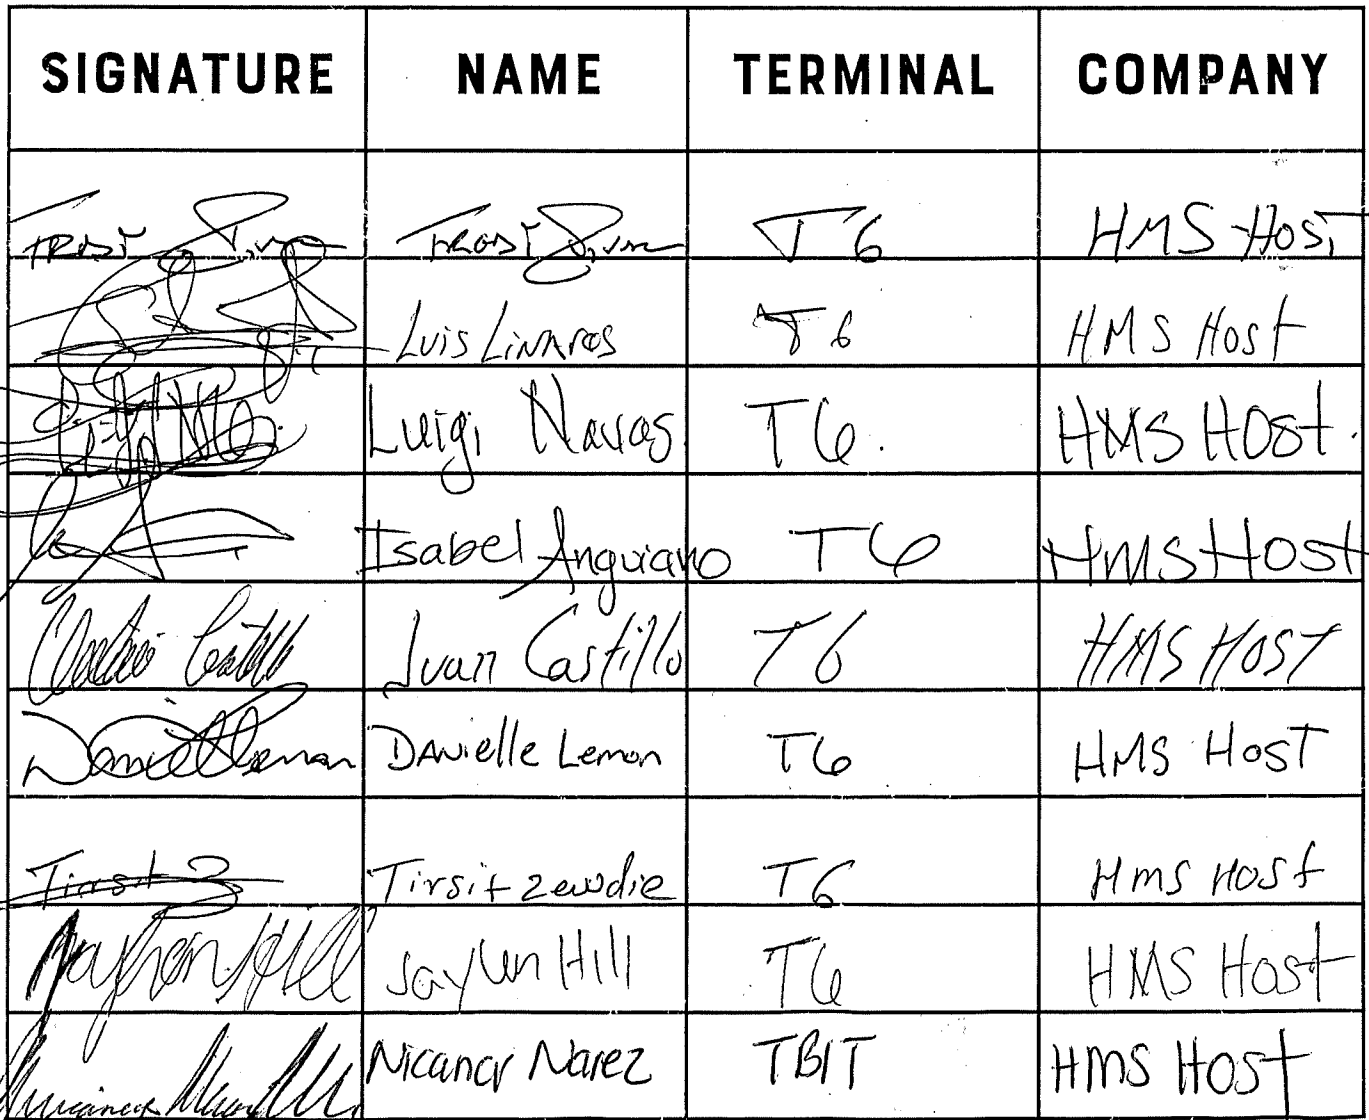 SIGNATURE NAME TERMINAL COMPANY
T6 HMS Host
Luis Linares T6 HMS Host
Luigi Navas. T6. HMS HOst.
Isabel Anguiano T6 HMS Host
Castillo Juan Castillo T6 HMS HOST
Danielle Lemon DANielle Lemon T6 HMS HosT
Tirsit Tirsit zewdie T6 Hms Host
Hill Jaylun Hill T6 HMS Host
Nicanor Narez TBIT HMS Host